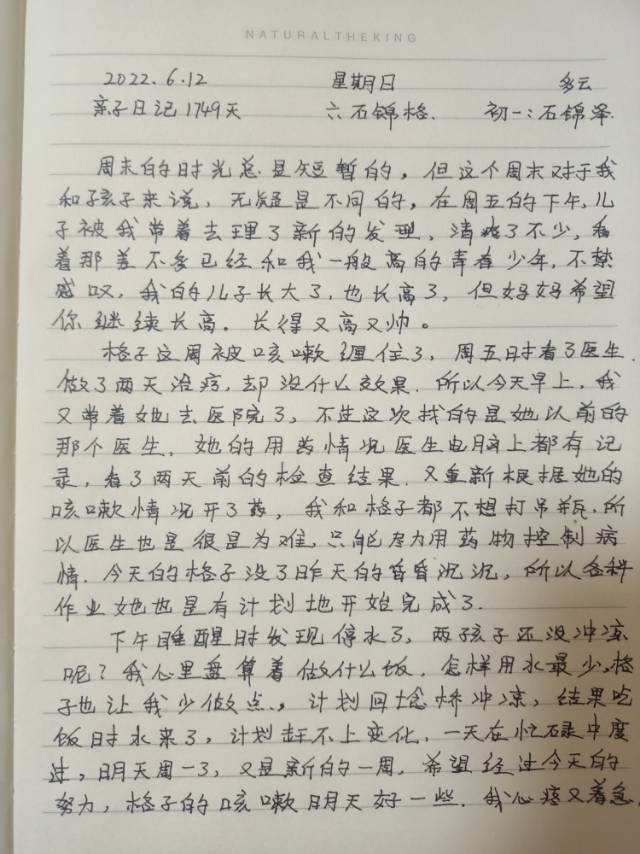 NATURALTHEKING
2022.6.12 星期日 多云
亲子日记1749天 六石锦格. 初一:石锦泽.
周末的时光总是短暂的，但这个周末对于我
和孩子来说，无疑是不同的，在周五的下午，儿
子被我带着去理了新的发型，清爽了不少，看
着那差不多已经和我一般高的青春少年，不禁
感叹，我的儿子长大了，也长高了，但妈妈希望
你继续长高。长得又高又帅。
格子这周被咳嗽缠住了，周五时看了医生.
做了两天治疗，却没什么效果.所以今天早上，我
又带着她去医院了，不过这次找的是她以前的
那个医生.她的用药情况医生电脑上都有记
录，看了两天前的检查结果.又重新根据她的
咳嗽情况开了药，我和格子都不想打吊瓶.所
以医生也是很是为难，只能尽力用药物控制病
情.今天的格子没了昨天的昏昏沉沉，所以各科
作业她也是有计划地开始完成了.
下午睡醒时发现停水了，两孩子还没冲凉
呢？我心里盘算着做什么饭.怎样用水最少，格
子也让我少做点.，计划回埝桥冲凉，结果吃
饭时水来了，计划赶不上变化，一天在忙碌中度
过，明天周一了，又是新的一周.希望经过今天的
努力，格子的咳嗽明天好一些.我心疼又着急